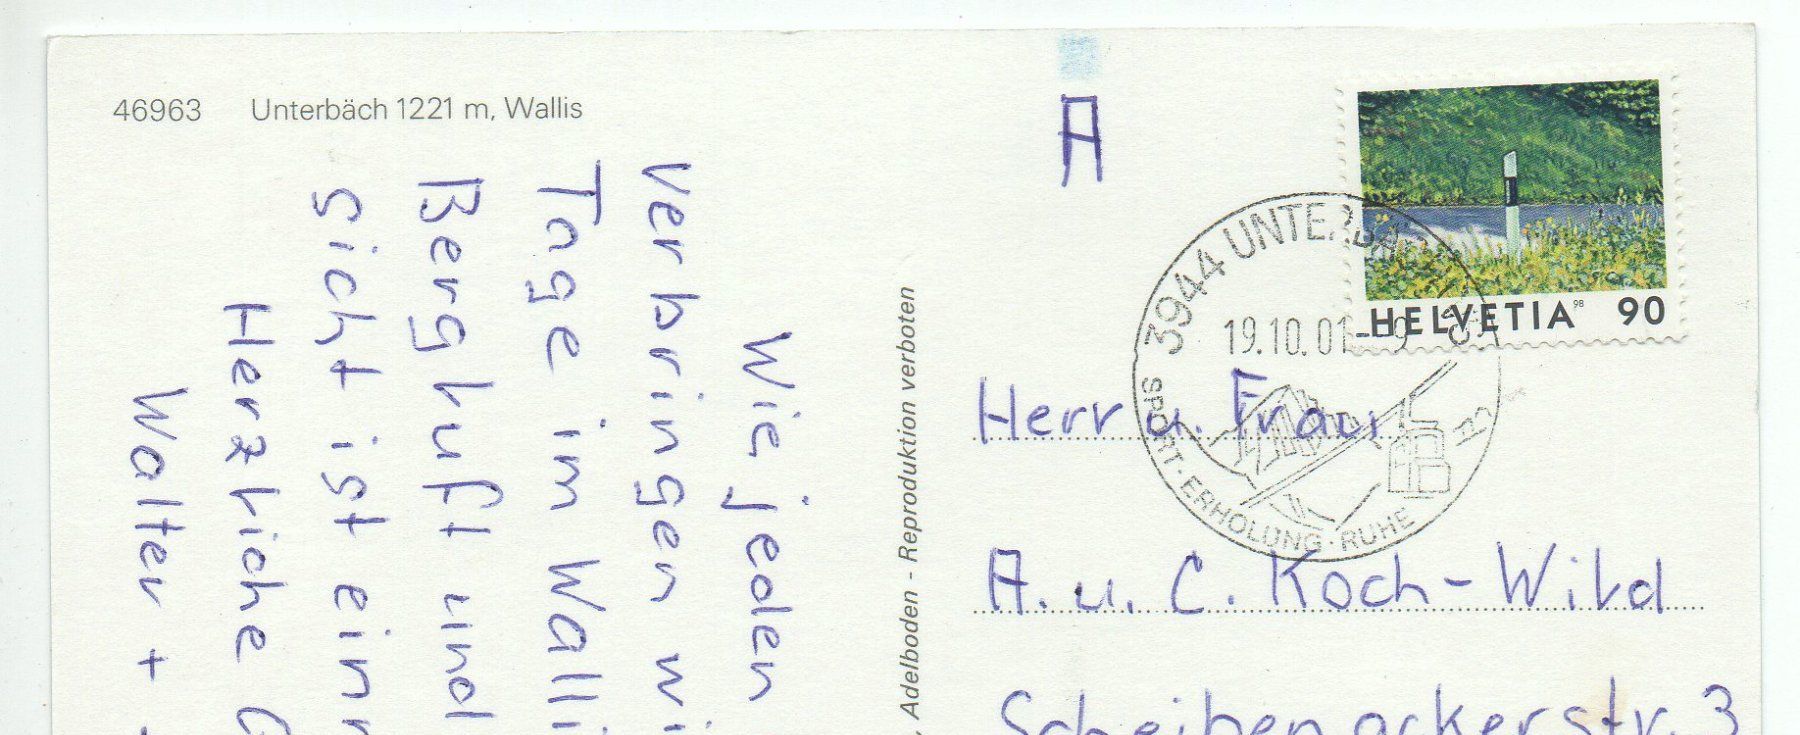 46963 Unterbäch 1221 m, Wallis
A
HELVETIA 98 90
3944 UNTERBÄCH
19.10.01-9
SPORT·ERHOLUNG·RUHE
Wie jeden
verbringen wi
Tage im Walli
Bergluft und
sicht ist ein
Herzliche G
Walter +
Adelboden - Reproduktion verboten
Herr u. Frau
A. u. C. Koch-Wild
Scheibenackerstr. 3